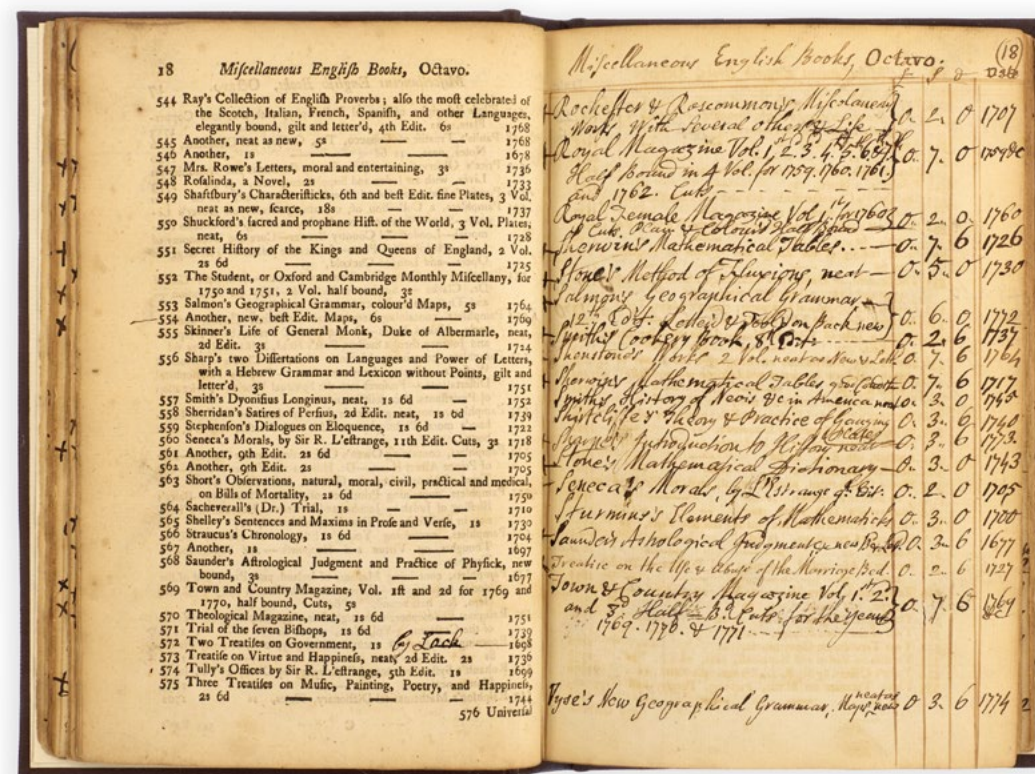 18 Miſcellaneous Engliſh Books, Octavo.
544 Ray's Collection of Engliſh Proverbs; alſo the moſt celebrated of
the Scotch, Italian, French, Spaniſh, and other Languages,
elegantly bound, gilt and letter'd, 4th Edit. 6s 1768
545 Another, neat as new, 5s — — 1768
546 Another, 1s — — — 1678
547 Mrs. Rowe's Letters, moral and entertaining, 3s 1736
548 Roſalinda, a Novel, 2s — — 1733
549 Shaftſbury's Characteriſticks, 6th and beſt Edit. fine Plates, 3 Vol.
neat as new, ſcarce, 18s — — 1737
550 Shuckford's ſacred and prophane Hiſt. of the World, 3 Vol. Plates,
neat, 6s — — — 1728
551 Secret Hiſtory of the Kings and Queens of England, 2 Vol.
2s 6d — — — 1725
552 The Student, or Oxford and Cambridge Monthly Miſcellany, for
1750 and 1751, 2 Vol. half bound, 3s
553 Salmon's Geographical Grammar, colour'd Maps, 5s 1764
554 Another, new, beſt Edit. Maps, 6s — 1769
555 Skinner's Life of General Monk, Duke of Albermarle, neat,
2d Edit. 3s — — — 1724
556 Sharp's two Diſſertations on Languages and Power of Letters,
with a Hebrew Grammar and Lexicon without Points, gilt and
letter'd, 3s — — — 1751
557 Smith's Dyoniſius Longinus, neat, 1s 6d — 1752
558 Sherridan's Satires of Perſius, 2d Edit. neat, 1s 6d 1739
559 Stephenſon's Dialogues on Eloquence, 1s 6d — 1722
560 Seneca's Morals, by Sir R. L'eſtrange, 11th Edit. Cuts, 3s 1718
561 Another, 9th Edit. 2s 6d — — 1705
562 Another, 9th Edit. 2s — — 1705
563 Short's Obſervations, natural, moral, civil, practical and medical,
on Bills of Mortality, 2s 6d — — 1750
564 Sacheverall's (Dr.) Trial, 1s — — 1710
565 Shelley's Sentences and Maxims in Proſe and Verſe, 1s 1730
566 Straucus's Chronology, 1s 6d — — 1704
567 Another, 1s — — — 1697
568 Saunder's Aſtrological Judgment and Practice of Phyſick, new
bound, 3s — — — 1677
569 Town and Country Magazine, Vol. 1ſt and 2d for 1769 and
1770, half bound, Cuts, 5s
570 Theological Magazine, neat, 1s 6d — 1751
571 Trial of the ſeven Biſhops, 1s 6d — 1739
572 Two Treatiſes on Government, 1s by Lock — 1698
573 Treatiſe on Virtue and Happineſs, neat, 2d Edit. 2s 1736
574 Tully's Offices by Sir R. L'eſtrange, 5th Edit. 1s 1699
575 Three Treatiſes on Muſic, Painting, Poetry, and Happineſs,
2s 6d — — — 1744
576 Univerſal
(18)
Miscellaneous English Books, Octavo.
£ s d Date
Rochester & Roscommon's Miscolaneous
Works With Several others & Life 0. 2. 0 1707
Royal Magazine Vol. 1st 2. 3. 4. 5. 6. & 7th
Half Bound in 4 Vol. for 1759. 1760. 1761. 0. 7. 0 1759 &c
and 1762. Cuts
Royal Female Magazine Vol 1st for 1760
Cuts. Plain & Colour'd Half Bound 0. 2. 0. 1760
Sherwin's Mathematical Tables. 0. 7. 6 1726
Stone's Method of Fluxions, neat 0. 5. 0 1730
Salmon's Geographical Grammar
12th Edit. Letter'd & Tool'd on Back new 0. 6. 0 1772
Smith's Cookery Book, 8th Edit. 0. 2. 6 1737
Shenstone's Works 2 Vol. neat as New & Lett. 0. 7. 6 1764
Sherwin's Mathematical Tables 0. 7. 6 1717
Smith's History of Nevis &c in America neat 0. 3. 0 1745
Shirtcliffe's Theory & Practice of Gauging 0. 3. 0 1740
Introduction to History neat Plates 0. 3. 6 1773.
Stone's Mathematical Dictionary 0. 3. 0 1743
Seneca's Morals, by L'Estrange 9th Edit. 0. 2. 0 1705
Sturmius's Elements of Mathematicks 0. 3. 0 1700
Saunders Astrological Judgment &c new Bound 0. 3. 6 1677
Treatise on the Use & Abuse of the Marriage Bed. 0. 2. 6 1727
Town & Country Magazine Vol. 1st 2d
and 3d Half Bd Cuts for the Years 0. 7. 6 1769 &c
1769. 1770. & 1771.
Vyse's New Geographical Grammar, Maps neat as new 0 3. 6 1774